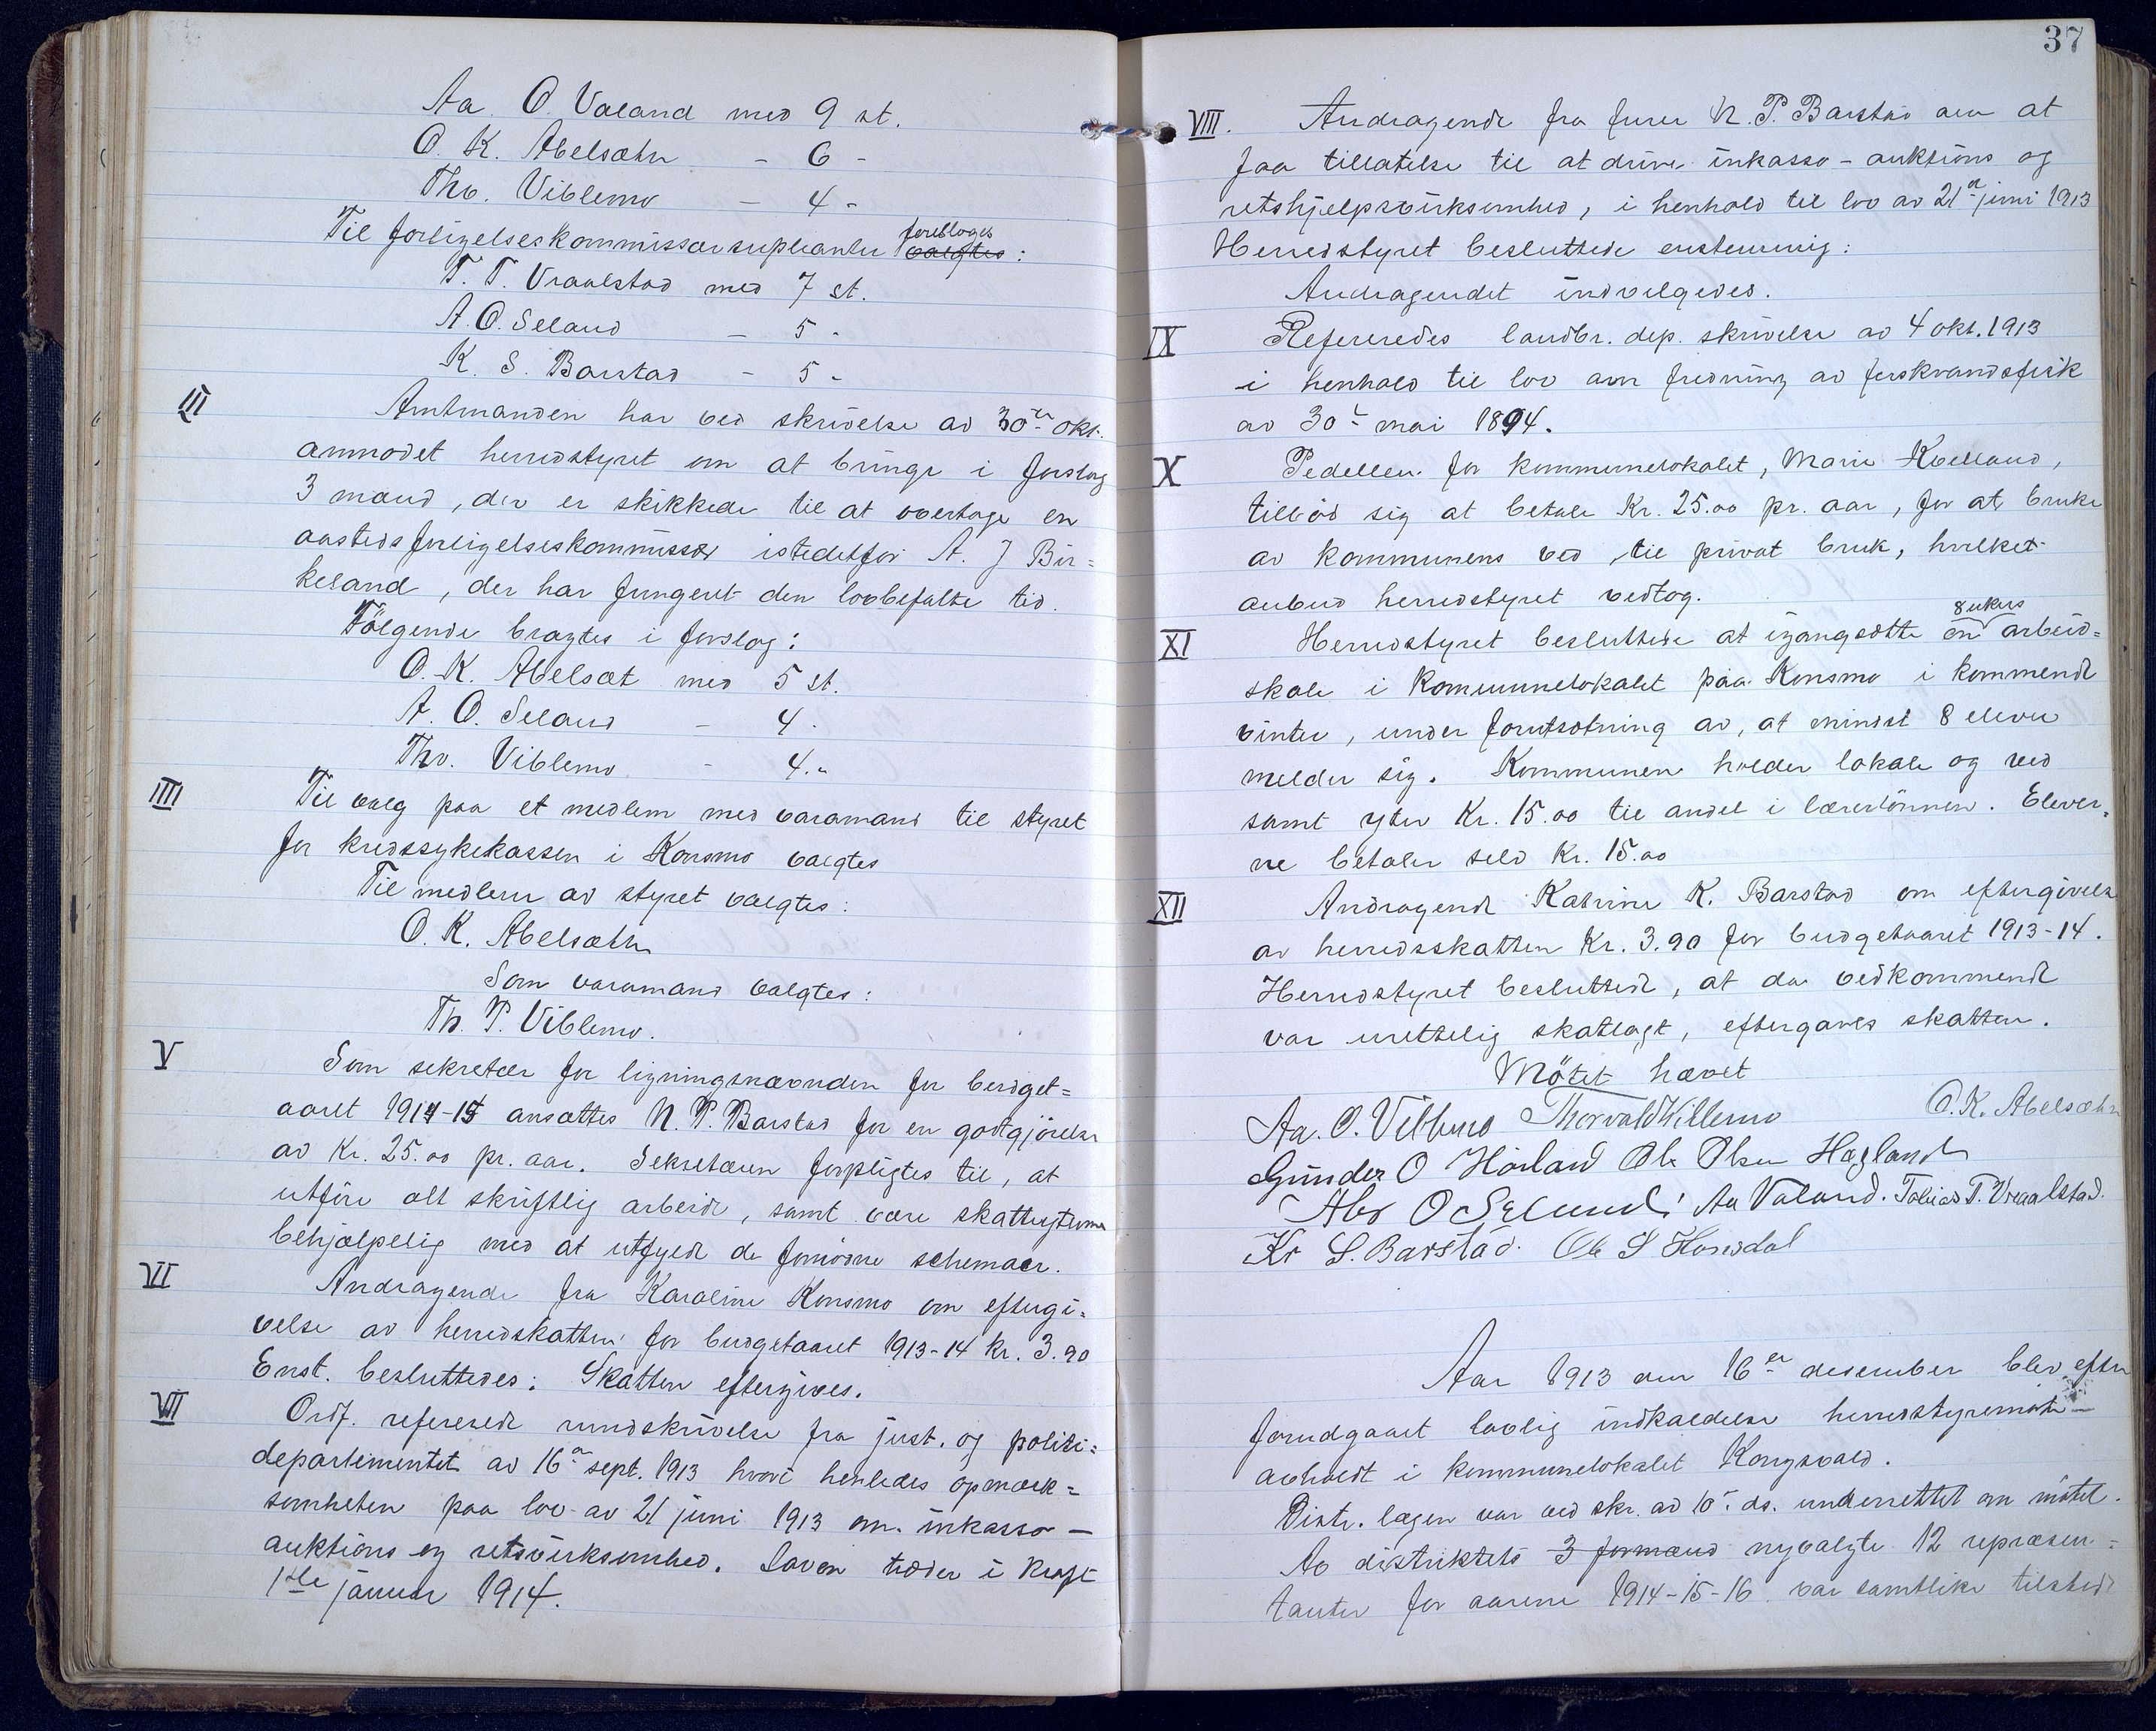 Aa. O. Valand med 9 st.
O. K. Abelsæth - 6 -
Thv. Viblemo - 4 -
Til forligelseskommissærsupleanter foresloges valgtes:
T. T. Vraalstad med 7 st.
A. O. Seland - 5 -
K. S. Barstad - 5 -
III Amtmanden har ved skrivelse av 30te okt.
anmodet herredstyret om at bringe i forslag
3 mænd, der er skikkede til at overtage en
aastedsforligelseskommissær istedetfor A. J Bir=
keland, der har fungert den lovbefalte tid.
Følgende bragtes i forslag:
O. K. Abelsæt med 5 st.
A. O. Seland - 4 -
Thv. Viblemo - 4 -
IIII Til valg paa et medlem med varamand til styret
for kredssykekassen i Konsmo valgtes
Til medlem av styret valgtes:
O. K. Abelsæth
Som varamand valgtes:
Th. T. Viblemo.
V Som sekretær for ligningsnævnden for budget=
aaret 1914-15 ansættes N. P. Barstad for en godtgjørelse
av Kr. 25.00 pr. aar. Sekretæren forpligtes til, at
utføre alt skriftlig arbeide, samt være skatteyterne
behjælpelig med at utfylde de fornødne schemaer.
VI Andragende fra Karoline Konsmo om eftergi=
velse av herredskatten for budgetaaret 1913-14 kr. 3.90
Enst. besluttedes: Skatten eftergives.
VII Ordf. refererede rundskrivelse fra just. og politi=
departementet av 16de sept. 1913 hvori henledes opmærk=
somheten paa lov av 21 juni 1913 om inkasso-
auktions og retsvirksomhed. Loven træder i kraft
1ste januar 1914.
37
VIII. Andragende fra furer N. P. Barstad om at
faa tillatelse til at drive inkasso-auktions og
retshjelpsvirksomhed, i henhold til lov av 21de juni 1913
Herredstyret besluttede enstemmig:
Andragendet indvilgedes.
IX Refereredes landbr. dep. skrivelse av 4 okt. 1913
i henhold til lov om fredning av ferskvandsfisk
av 30te mai 1894.
X Pedellen for kommunelokalet, Marie Kvelland,
tilbød sig at betale Kr. 25.00 pr. aar, for at bruke
av kommunens ved til privat bruk, hvilket
anbud herredstyret vedtog.
XI Herredstyret besluttede at igangsætte en 8 ukers arbeid=
skole i Kommunelokalet paa Konsmo i kommende
vinter, under forutsætning av, at mindst 8 elever
melder sig. Kommunen holder lokale og ved
samt yter Kr. 15.00 til andel i lærerlønnen. Elever=
ne betaler selv Kr. 15.00
XII Andragende Katrine K. Barstad om eftergivelse
av herredsskatten Kr. 3.90 for budgetaaret 1913-14.
Herredstyret besluttede, at da vedkommende
var urettelig skatlagt, eftergaves skatten.
Møtet hævet
Aa. O. Viblemo Thorvald Villemo O. K. Abelsæth
Gunder O Hörland Ole Olsen Hægland
Abr O Seland Aa Valand. Tobias T. Vraalstad.
Kr S. Barstad. Ole S
Aar 1913 den 16de desember blev efter
forudgaaet lovlig indkaldelse herredstyremøte
avholdt i kommunelokalet Kongsvald.
Distr. lægen var ved skr. av 10. ds. underrettet om møtet.
Av distriktets 3 formænd nyvalgte 12 repræsen=
tanter for aarene 1914-15-16 var samtlike tilstede